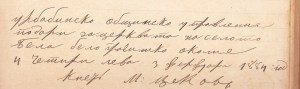 урбабинско общинско управление
подари за церквата на селото
Бела белоградшко околие
4 Четири лева 3 февруари
М. Цеков